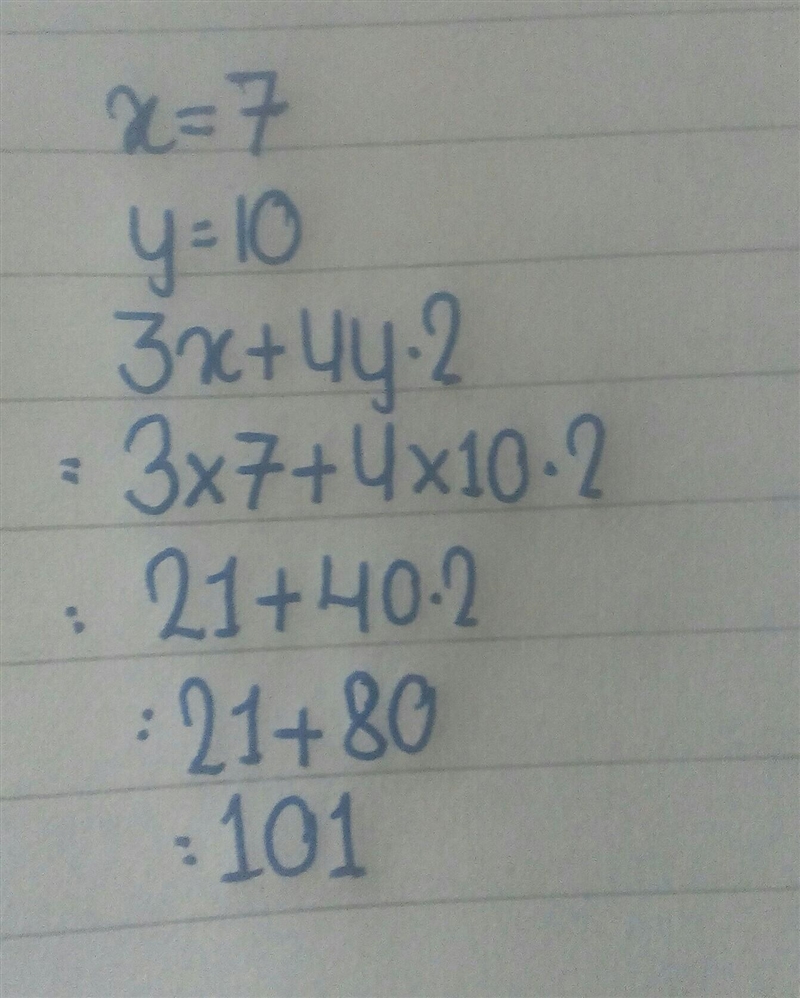 x=7
y=10
3x+4y·2
= 3×7+4×10·2
= 21+40·2
= 21+80
= 101